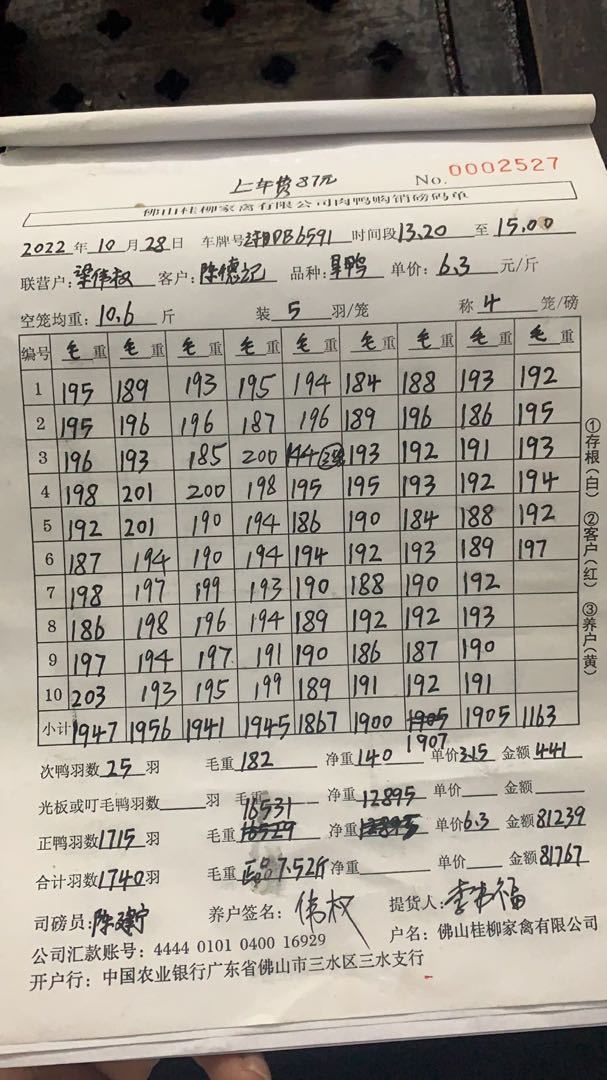 上车费87元
No. 0002527
佛山桂柳家禽有限公司肉鸭购销磅码单
2022年10月28日 车牌号DB6591 时间段13.20至15.00
联营户:梁伟权 客户:陈德记 品种:旱鸭 单价:6.3元/斤
空笼均重:10.6斤 装5羽/笼 称4笼/磅
编号 毛重 毛重 毛重 毛重 毛重 毛重 毛重 毛重 毛重
1 195 189 193 195 194 184 188 193 192
2 195 196 196 187 196 189 196 186 195
3 196 193 185 200 144 193 192 191 193
4 198 201 200 198 195 195 193 192 194
5 192 201 190 194 186 190 184 188 192
6 187 194 190 194 194 192 193 189 197
7 198 197 199 193 190 188 190 192
8 186 198 196 194 189 192 192 193
9 197 194 197 191 190 186 187 190
10 203 193 195 199 189 191 192 191
小计 1947 1956 1941 1945 1867 1900 1905 1905 1163
1907
次鸭羽数25羽 毛重182 净重140 单价3.15 金额441
光板或叮毛鸭羽数 羽 毛重 16531 净重12895 单价 金额
正鸭羽数1715羽 毛重16529 净重 单价6.3 金额81239
合计羽数1740羽 毛重正品7.52斤 净重 单价 金额81767
司磅员: 养户签名:伟权 提货人:
公司汇款账号:4444 0101 0400 16929 户名:佛山桂柳家禽有限公司
开户行:中国农业银行广东省佛山市三水区三水支行
①存根(白) ②客户(红) ③养户(黄)